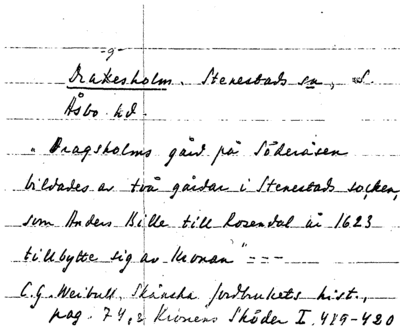 -9-
Drakesholm. Stenestads sn, S.
Åsbo hd.
"Dragsholms gård på Söderåsen
bildades av två gårdar i Stenestads socken,
som Anders Bille till Rosendal år 1623
tillbytte sig av Kronan" ---
C.G. Weibull, Skånska jordbrukets hist.,
pag. 74, & Kronens Skøder I. 419-420